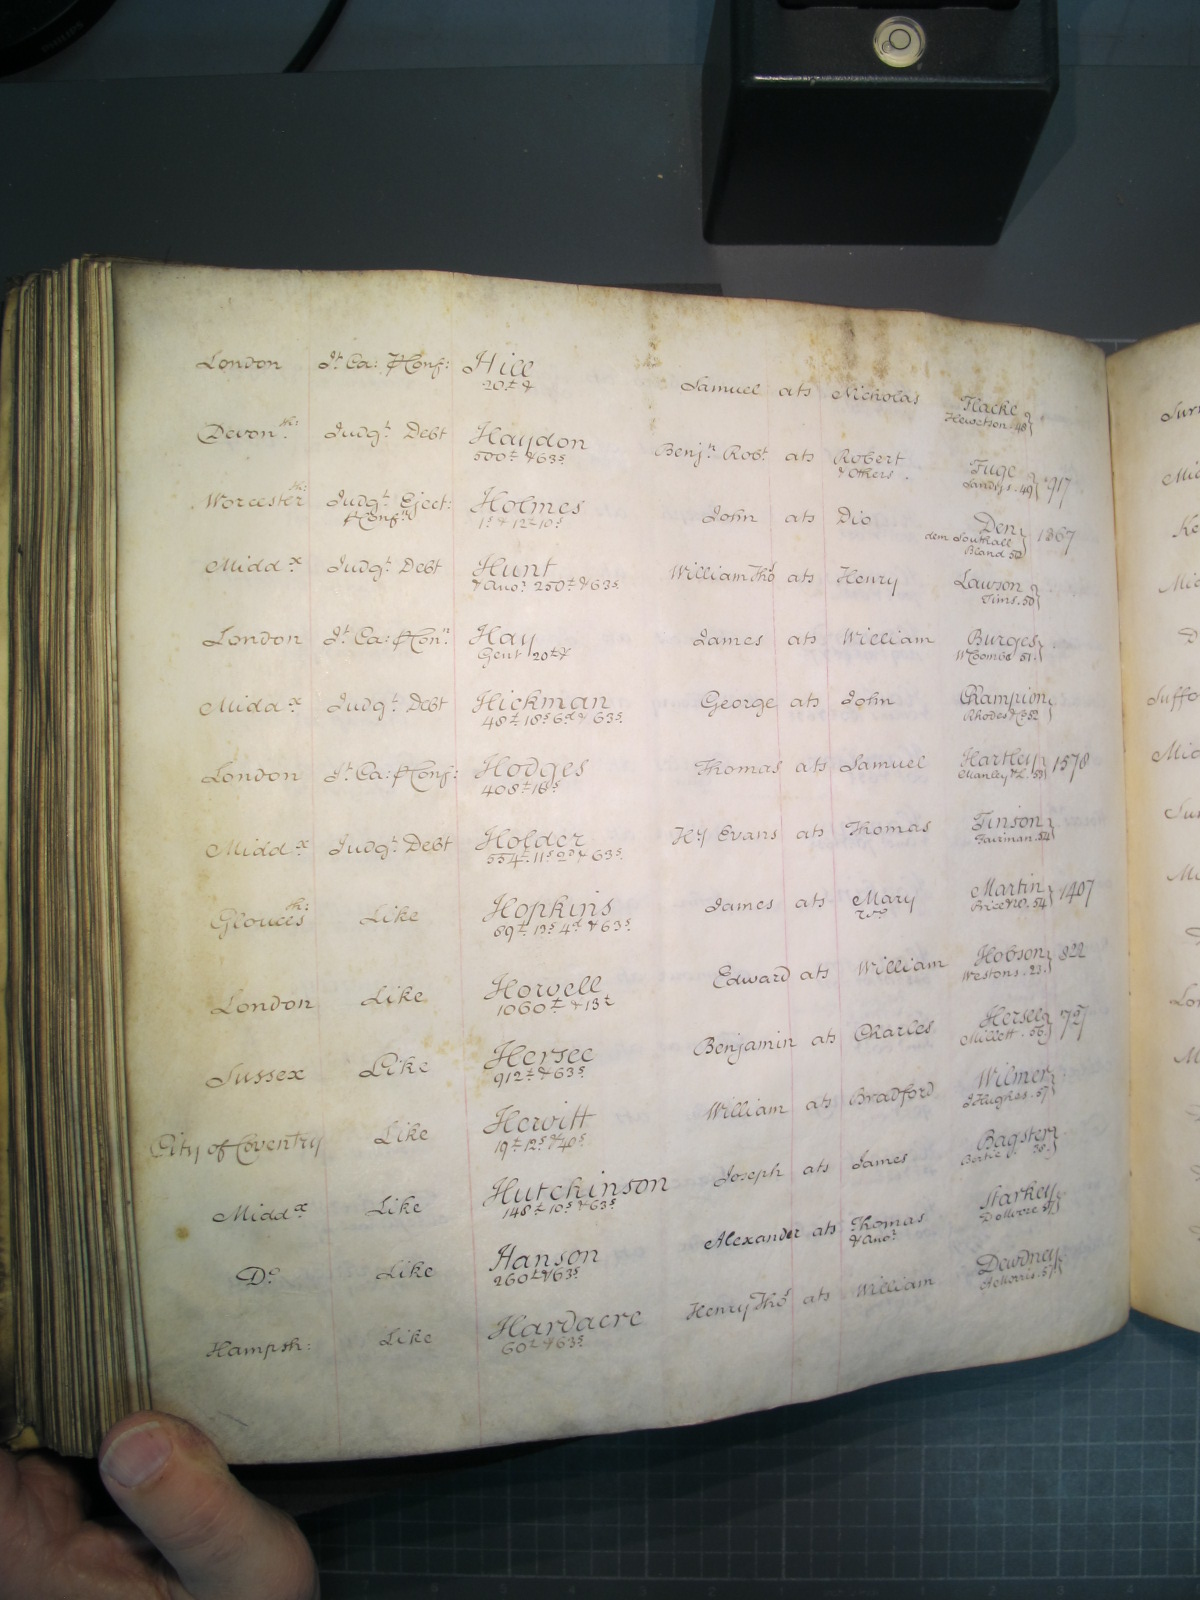 London Jt. Ca: & Conf: Hill Samuel ats Nicholas Flacke
20£ & Hewetson . 48
Devon.sh: Judgt. Debt Haydon Benjn. Robt. ats Robert Fuge 917
500£ & 63s & Others . Sandys . 49
Worcestersh: Judgt. Eject: Holmes John ats Dio Den 1367
& Conf 1s & 12£ 10s dem Southall
Bland 50
Middx Judgt. Debt Hunt William Tho ats Henry Lawson
& Anor. 250£ & 63s Tims . 50
London Jt. Ca: & Con Hay James ats William Burges
Gent 20£ & WCoombe 51.
Middx Judgt. Debt Hickman George ats John Champion
48£ 18s 6d & 63s Rhodes & C 52
London Jt. Ca: & Conf: Hodges Thomas ats Samuel Hartley 1578
408£ 18s
Middx Judgt. Debt Holder Hy Evans ats Thomas Tinson
554£ 11s 2d & 63s Fairman . 54
Gloucessh: Like Hopkins James ats Mary Martin 1407
69£ 13s 4d & 63s Wo. 54
London Like Horvell Edward ats William Hobson 822
1060£ & 13£ Westons . 23.
Sussex Like Hersee Benjamin ats Charles Hersee
912£ & 63s Millett . 56.
City of Coventry Like Hewitt William ats Bradford Wilmer
19£ 12s & 40s JHughes . 57
Middx Like Hutchinson Joseph ats James Bagster
148£ 10s & 63s
Do. Like Hanson Alexander ats Thomas Starkey
260£ & 63s & Anor.
Hampsh: Like Hardacre Henry Tho ats William Dewdney
60£ & 63s